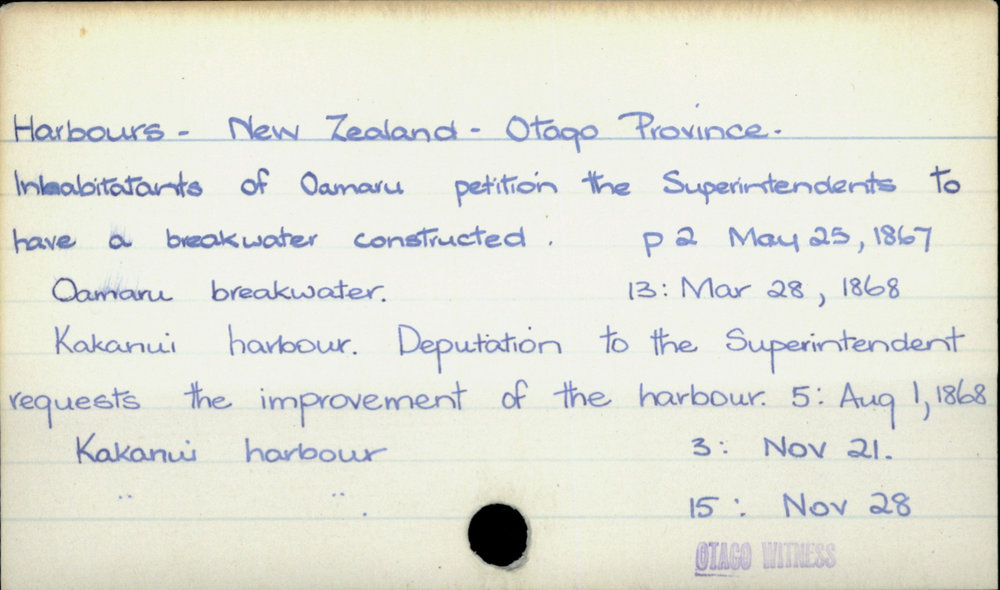 Harbours - New Zealand - Otago Province.
Inhabitatants of Oamaru petition the Superintendents to
have a breakwater constructed. p 2 May 25, 1867
Oamaru breakwater. 13: Mar 28, 1868
Kakanui harbour. Deputation to the Superintendent
requests the improvement of the harbour. 5: Aug 1, 1868
Kakanui harbour 3: Nov 21.
" " . 15: Nov 28
OTAGO WITNESS